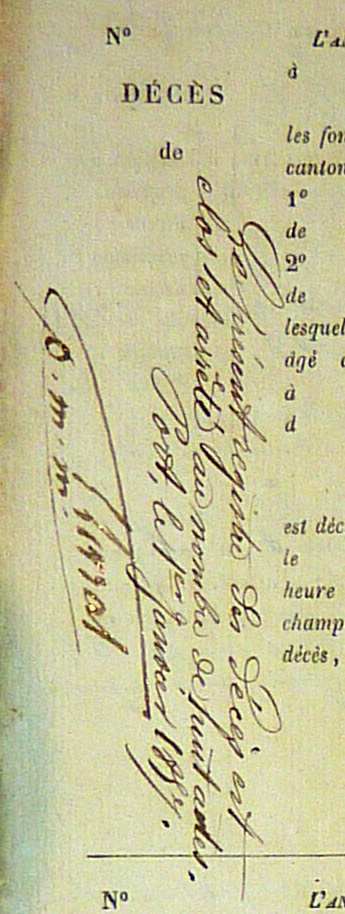 N°
DÉCÈS
de
L'AN
à
les fon
canton
1°
de
2°
de
lesquel
âgé d
à
d
est déc
le
heure
champ
décès,
Le présent registre des Décès est
clos et arrêté au nombre de huit actes.
Port, le 1er Janvier 1887.
N°
L'AN